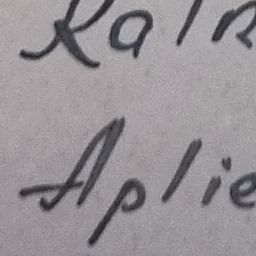 Kaln
Aplie